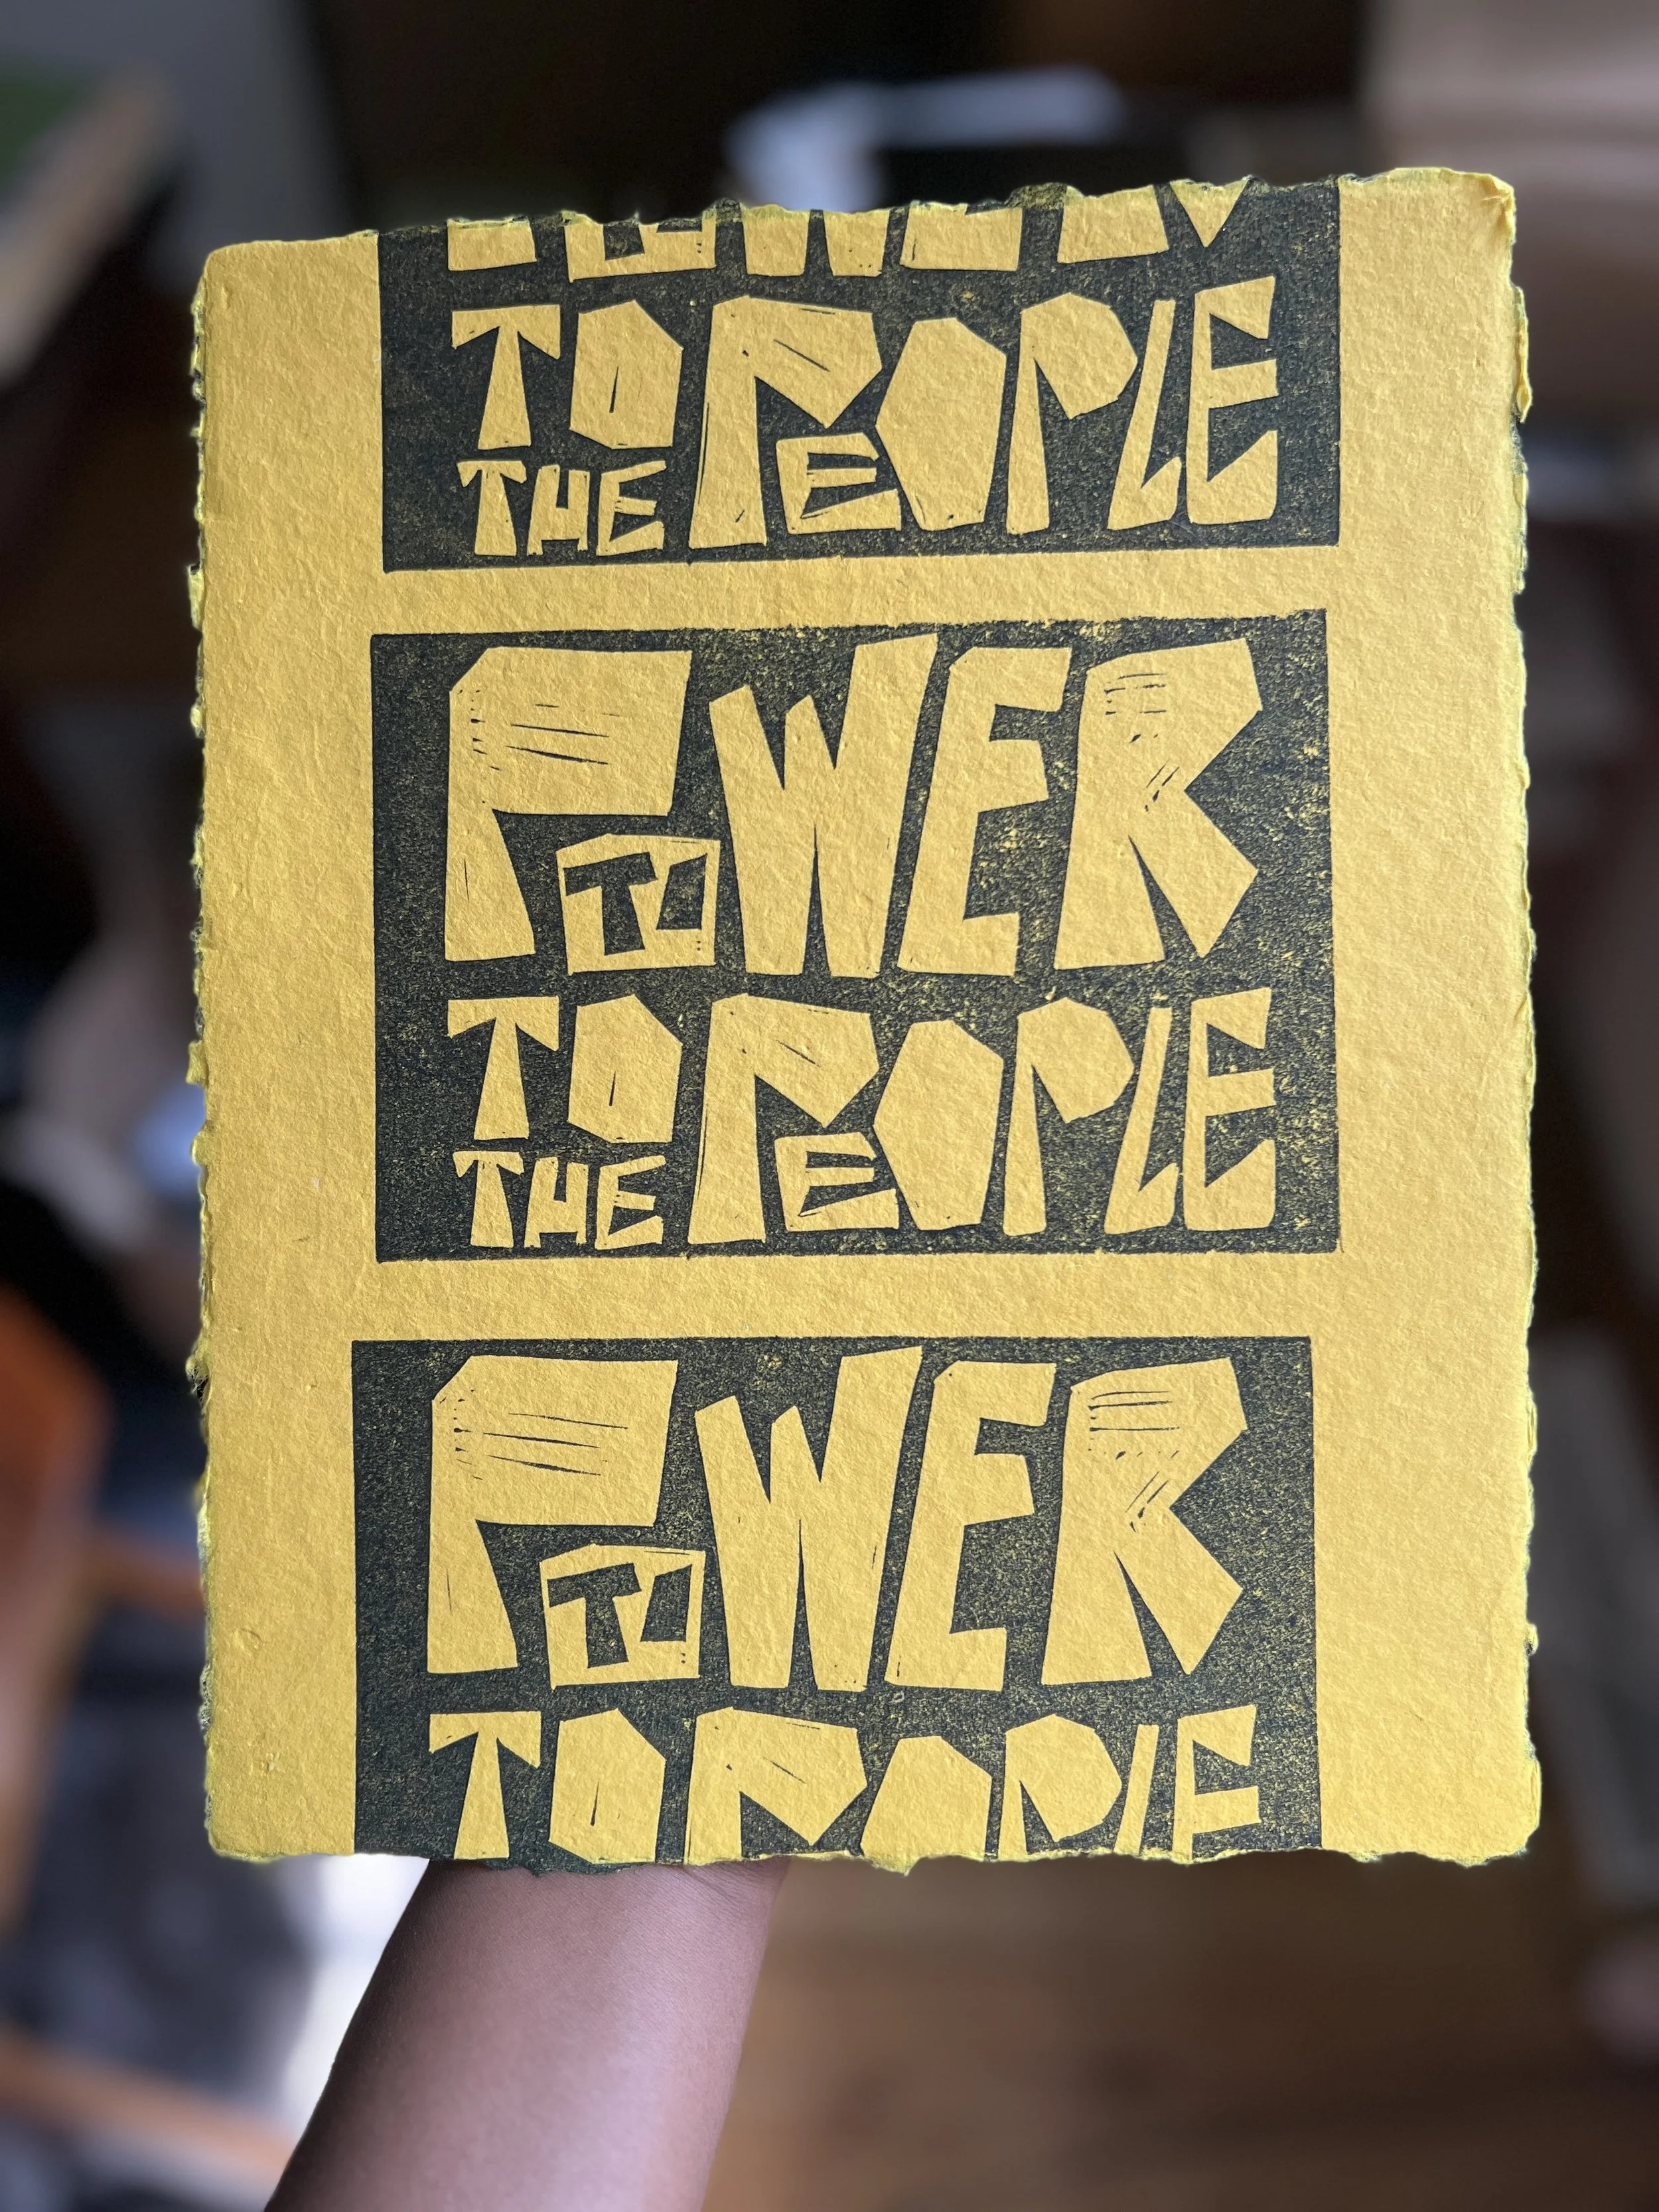 TO THE PEOPLE
POWER
TO THE PEOPLE
POWER
TO